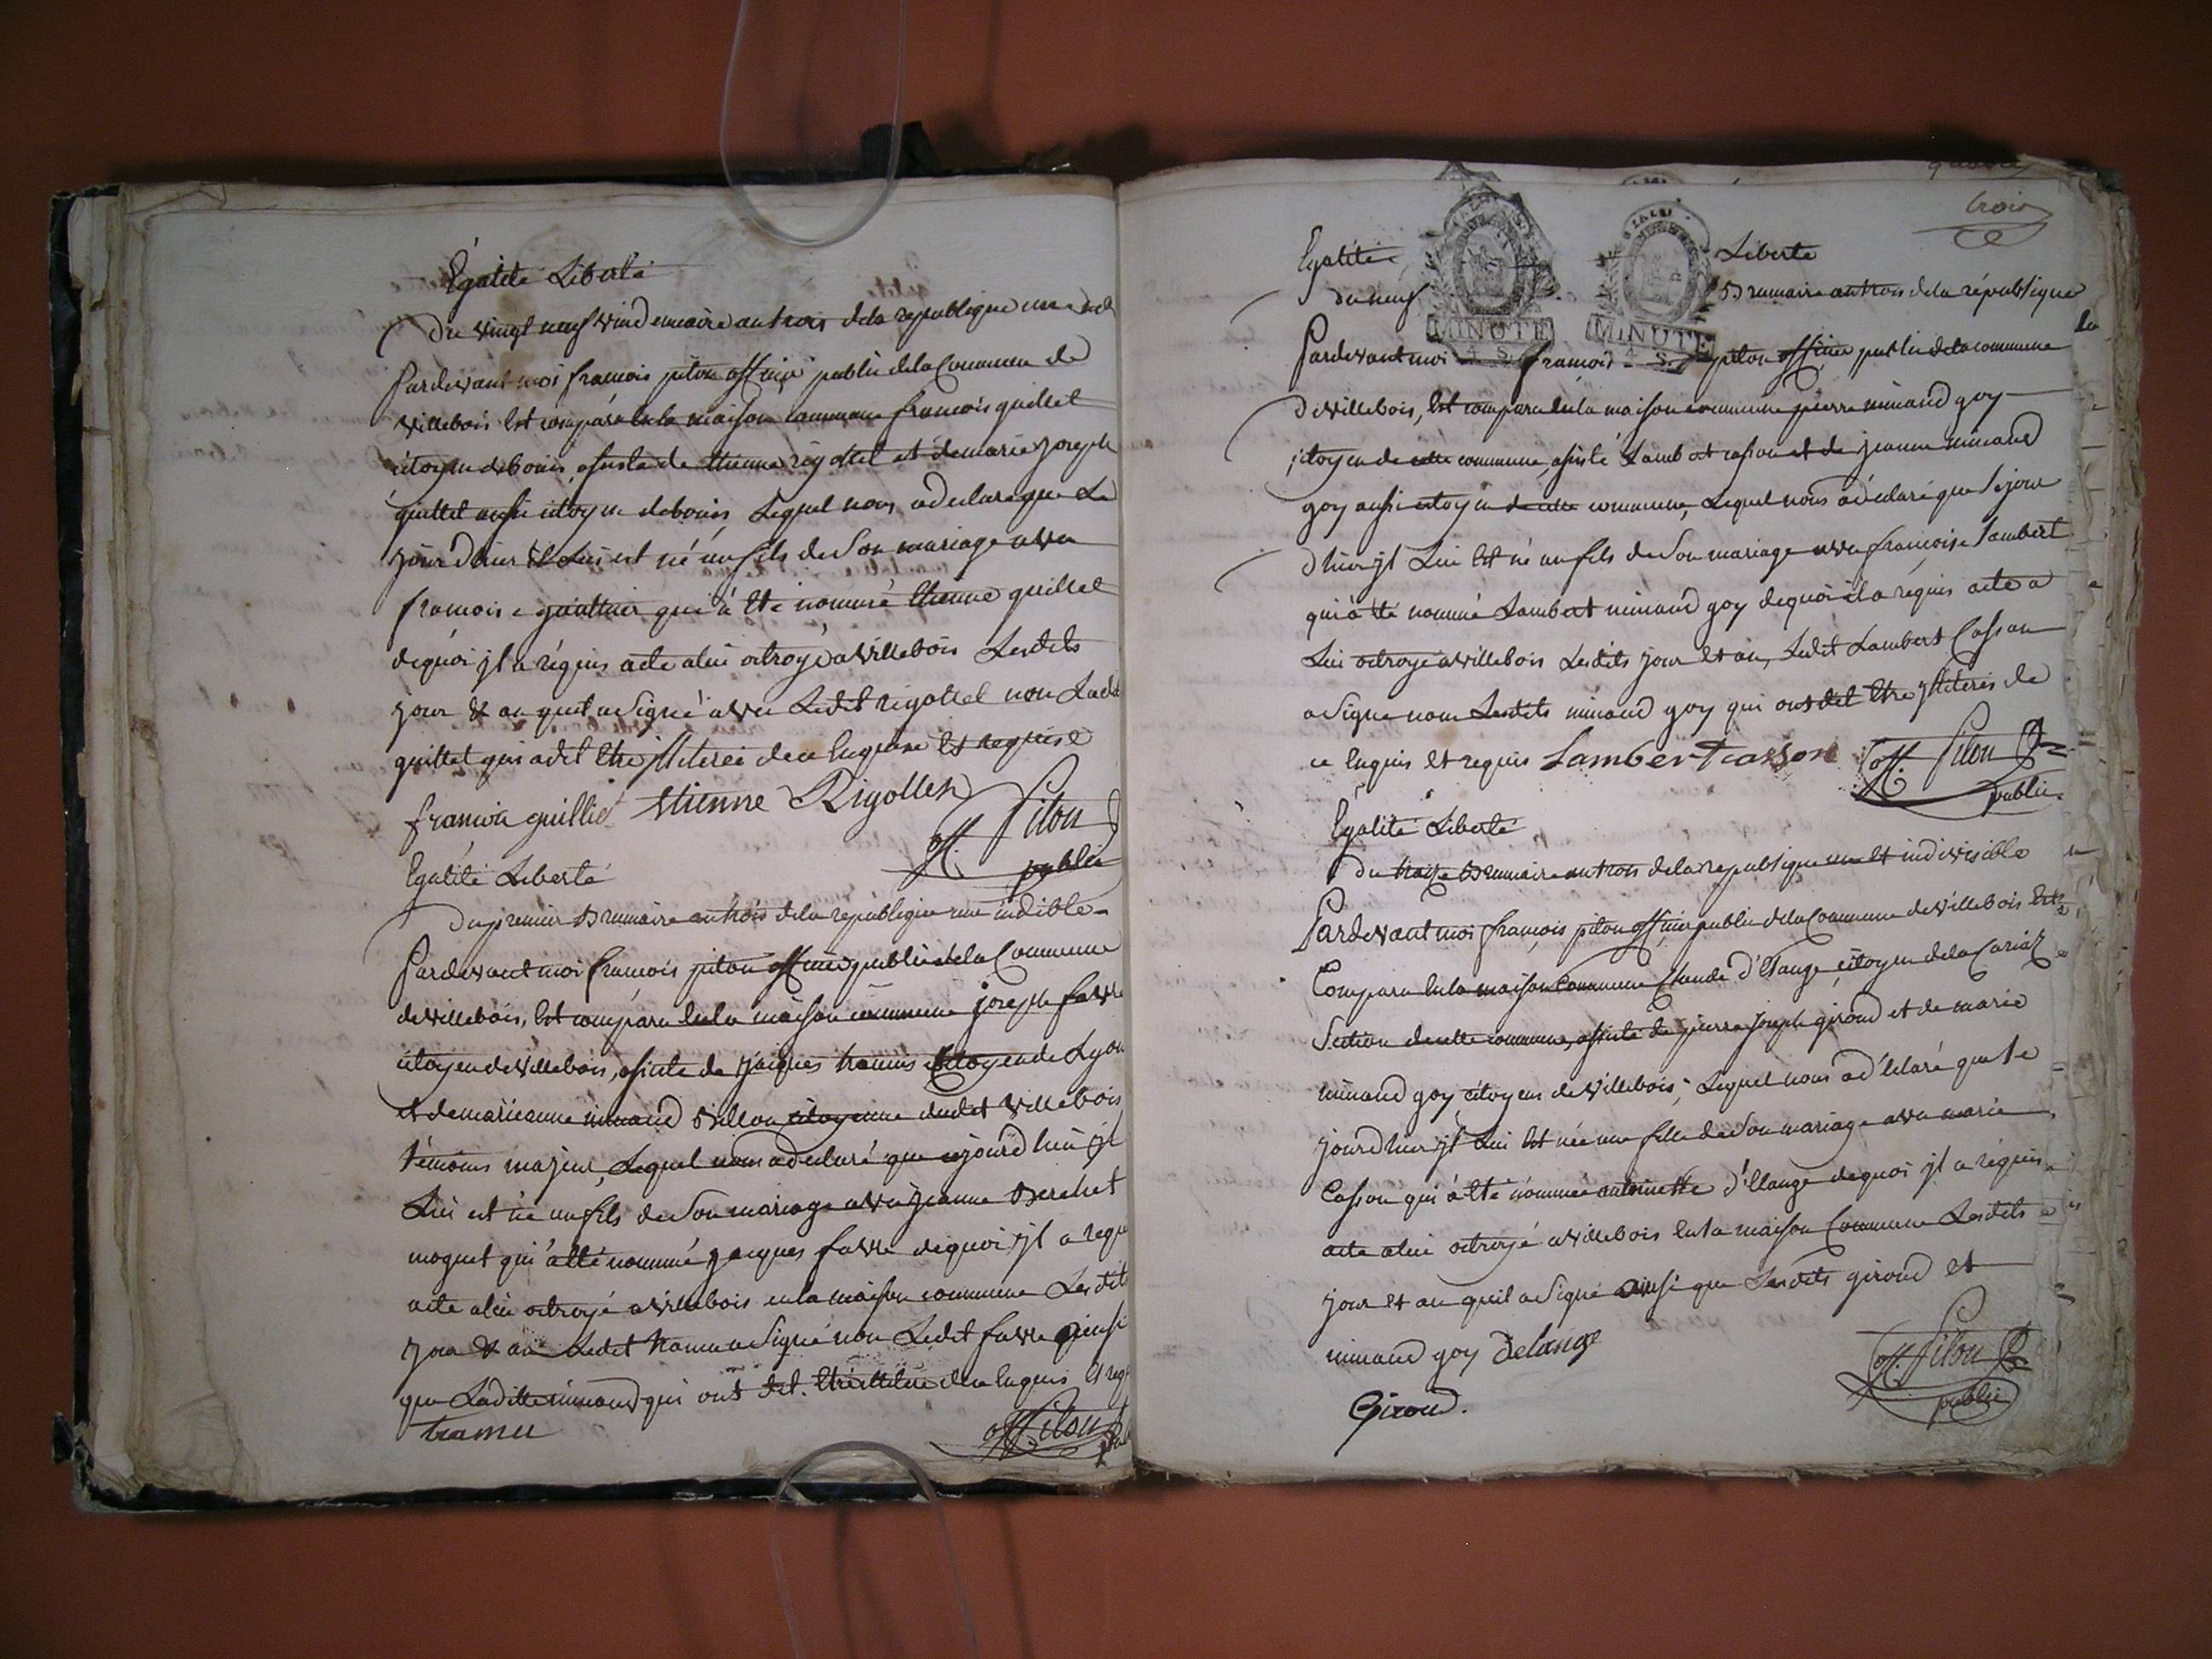 Egalité Liberté
Du vingt neuf vind emiaire an trois dela republique une
Pardevant moi francois piton officié public dela Commune de
villebois Est comparu enla maison commune francois quillet
citoyen debouis, asisté de Etienne rigottet et demarie joseph
quillet ausi citoyen debouis Lequel nous adeclaré que Le
jour dhier il Lui est né un fils de Son mariage avec
francoise gauttier qui à Eté nommé Etienne quillet
dequoi jl a réquis acte alui octroyé avillebois Lesdits
jour & an quet a Signé avec Ledit rigottet non Ladit
quillet qui adit Etre jlliterée dece Enquise Et requise
francois quilliet Etienne Rigollet
off. Piton
public
Egalité Liberté
Du premier Brumaire an trois dela republique une indible
Pardevant moi francois piton officié public dela Commune
devillebois, Est comparu enla maison commune joseph favre
citoyen devillebois, asisté de jacques tramus Citoyen de Lyon
et demarieanne minand billon citoyenne dudit villebois
témoins majeur, Lequel nous adeclaré que cejourd'hui jl
Lui est né un fils de Son mariage avec jeanne Berchet
moguet qui à Eté nommé jacques favre dequoi jl a requ
acte alui octroyé avillebois enla maison commune Lesdits
jour & an Ledit tramu a Signé non Ledit favre ainsi
que Laditte minand qui ont dit Etre illiteré dece Enquis Et req
tramu
off. Piton
publ
trois
Egalité Liberté
du neuf Brumaire an trois dela république
MINUTE MINUTE
Pardevant moi francois piton officié public dela commune
devillebois, Est comparu enla maison commune pierre minand goy
citoyen de cette commune, asisté Lambert casson et de jeanne minand
goy ausi citoyen de cette commune, Lequel nous adéclaré que Le jour
dhier jl Lui Est né un fils de Son mariage avec francoise Lambert
qui à Eté nommé Lambert minand goy dequoi il a réquis acte a
Lui octroyé avillebois Lesdits jour Et an, Ledit Lambert Casson
a Signé non Lesdits minand goy qui ont dit Etre jlliterés de
ce Enquis Et requis Lambert casson off. Piton
public
Egalité Liberté
Du treize Brumaire an trois dela republique une Et indivisible
Pardevant moi francois piton officié public dela Commune devillebois Est
Comparu enla maison Commune Claude d'Elange citoyen dela Cariaz
Section decette commune, asisté de pierre joseph giroud et de marie
minand goy citoyens devillebois; Lequel nous adéclaré que Le
jourdhier jl Lui Est née une fille de Son mariage avec marie
Casson qui à Eté nommée antoinette d'Elange dequoi jl a réquis
acte alui octroyé avillebois Enla maison Commune Lesdits
jour Et an quil a Signé ainsi que Lesdits giroud Et
minand goy Delange
Giroud.
off. Piton
public